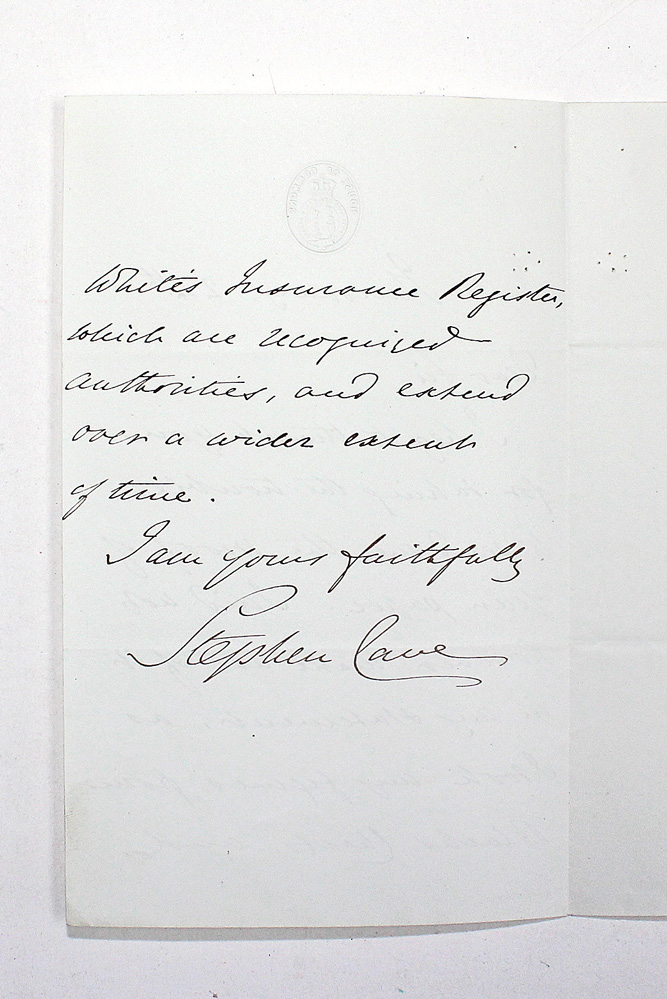 White's Insurance Register,
which are recognized
authorities, and extend
over a wider extent
of time.
I am yours faithfully
Stephen Cave